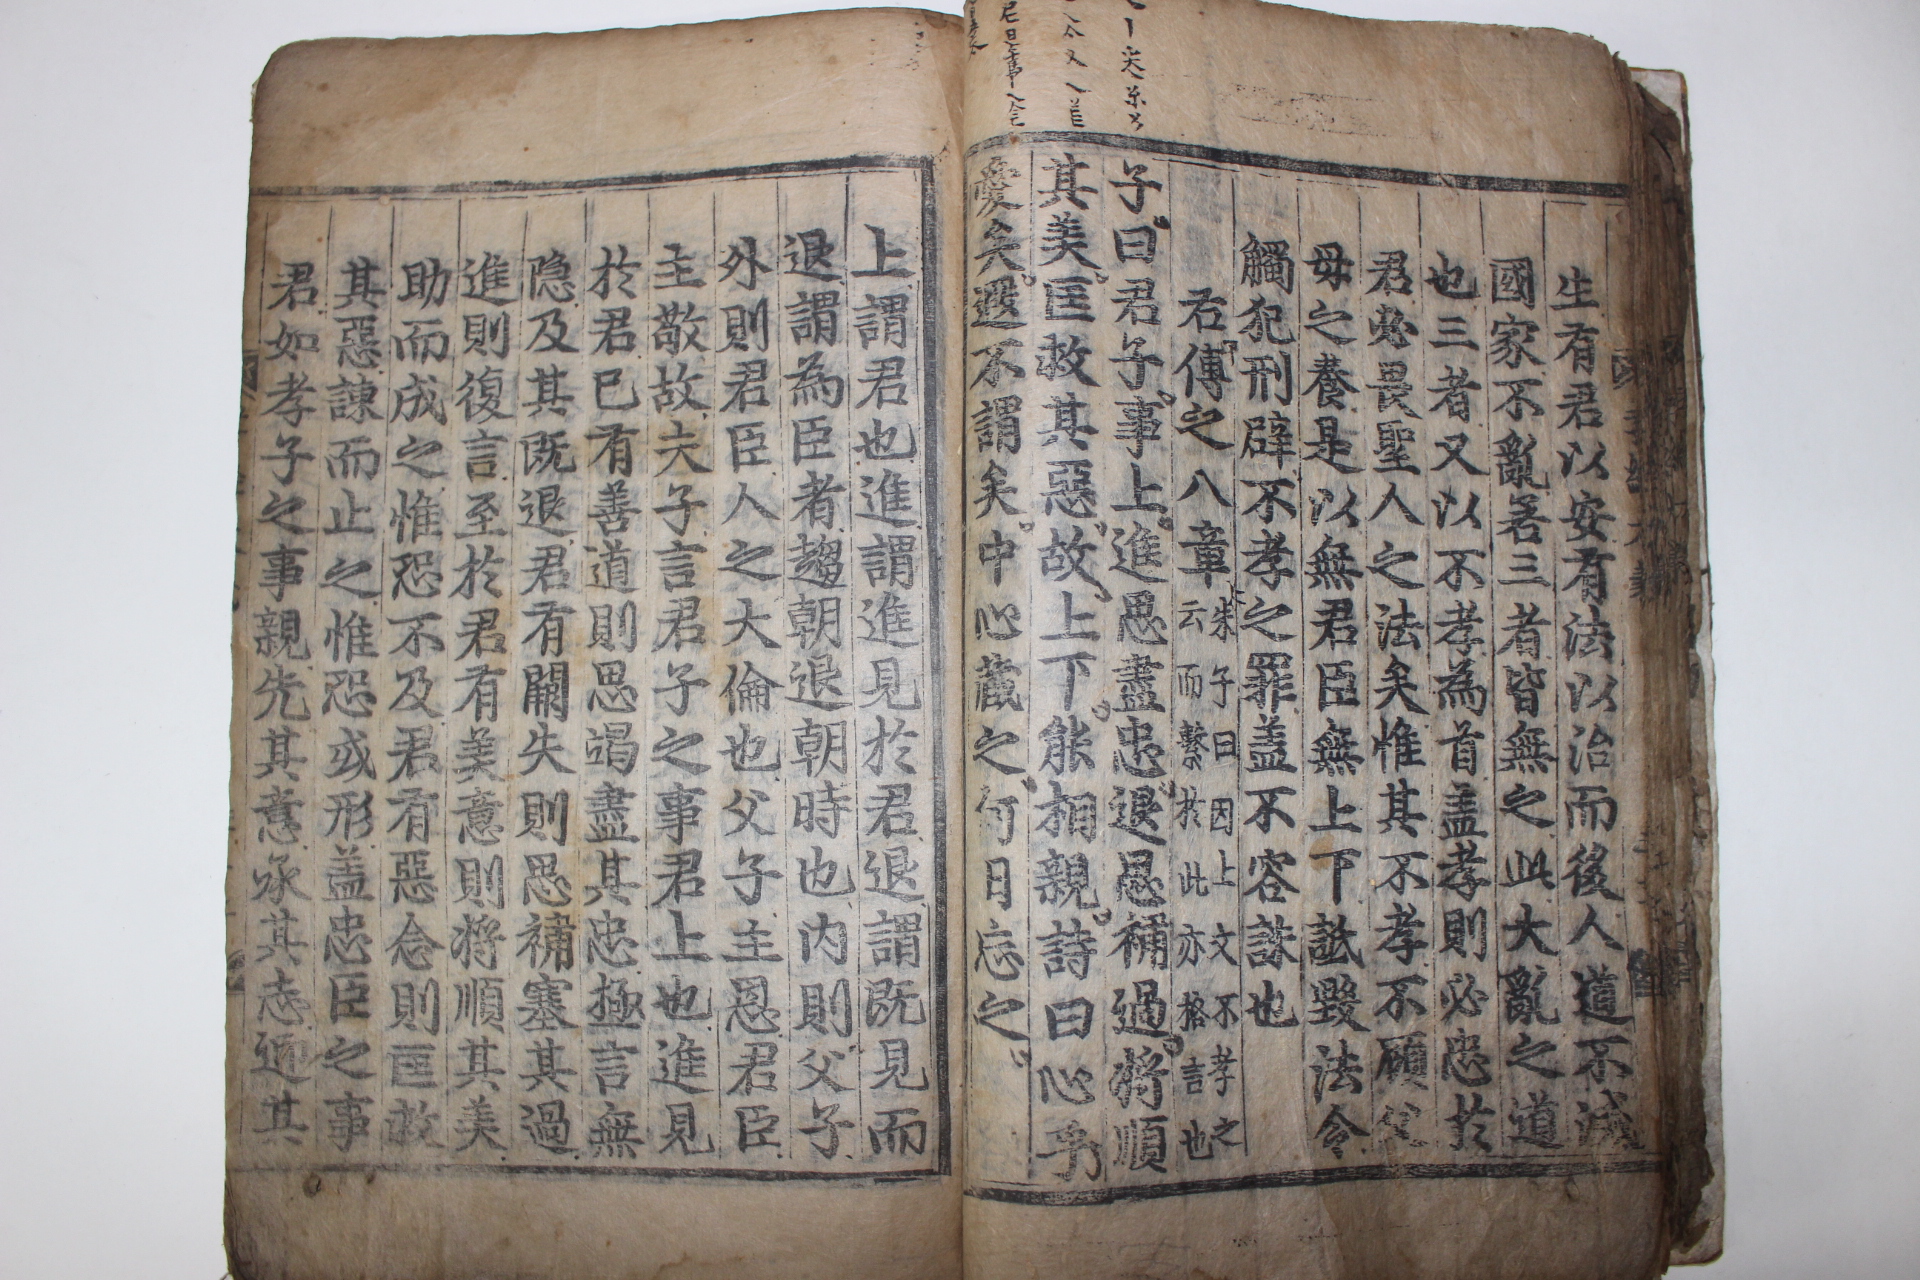 生有君以安有法以治而後人道不滅
國家不亂若三者皆無之此大亂之道
也三者又以不孝為首盖孝則必忠於
君必畏聖人之法矣惟其不孝不顧父
母之養是以無君臣無上下詆毀法令
觸犯刑辟不孝之罪盖不容誅也
右傳之八章
朱子曰因上文不孝之
云而繫於此亦格言也
子曰君子事上進思盡忠退思補過將順
其美匡救其惡故上下能相親詩曰心乎
愛矣遐不謂矣中心藏之何日忘之
上謂君也進謂進見於君退謂既見而
退謂為臣者趨朝退朝時也内則父子
外則君臣人之大倫也父子主恩君臣
主敬故夫子言君子之事君上也進見
於君已有善道則思竭盡其忠極言無
隐及其既退君有闕失則思補塞其過
進則復言至於君有美意則將順其美
助而成之惟恐不及君有惡念則匡救
其惡諫而止之惟恐或形盖忠臣之事
君如孝子之事親先其意承其志迎其